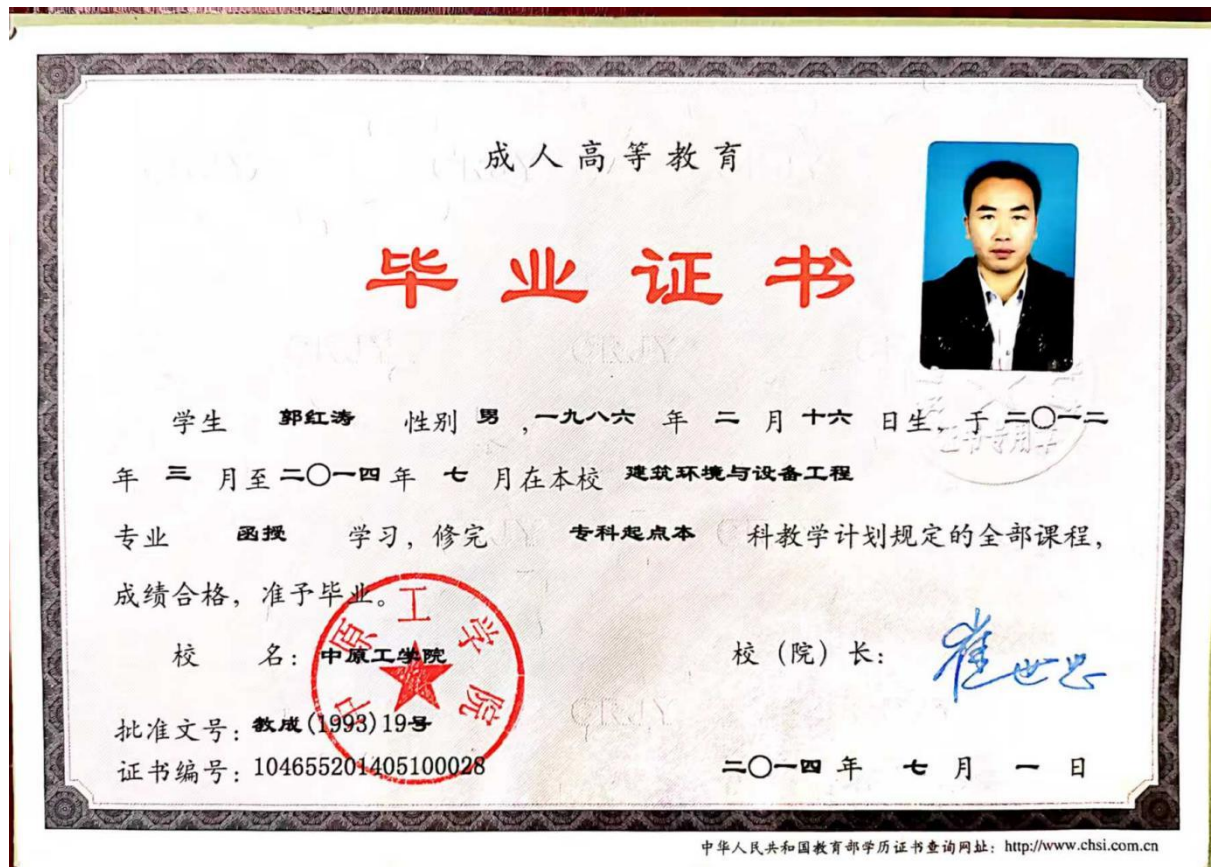 成人高等教育
毕业证书
学生 郭红涛 性别 男 ,一九八六 年 二 月 十六 日生, 于 二〇一二
年 三 月至 二〇一四 年 七 月在本校 建筑环境与设备工程
专业 函授 学习, 修完 专科起点本 科教学计划规定的全部课程,
成绩合格, 准予毕业。
校 名: 中原工学院
校 (院) 长: 崔世忠
中原工学院
批准文号: 教成(1993)19号
证书编号: 104655201405100028
二〇一四 年 七 月 一 日
中华人民共和国教育部学历证书查询网址: http://www.chsi.com.cn